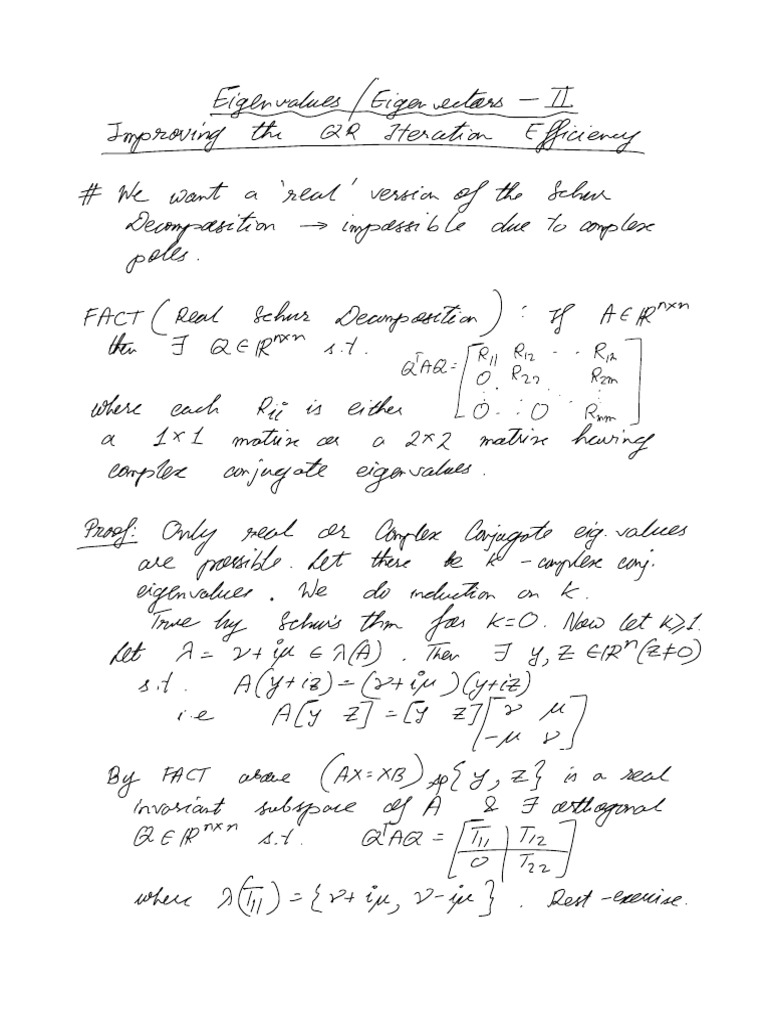 Eigenvalues / Eigenvectors – II
Improving the QR Iteration Efficiency
# We want a 'real' version of the Schur
Decomposition → impossible due to complex
poles.
FACT (Real Schur Decomposition) : If A ∈ ℝ^{n×n}
then ∃ Q ∈ ℝ^{n×n} s.t. Q^T A Q = [R_{11} R_{12} ·· R_{1n}
0 R_{22} R_{2m}
0 ·· 0 R_{mm}]
where each R_{ii} is either
a 1×1 matrix or a 2×2 matrix having
complex conjugate eigenvalues.
Proof: Only real or Complex Conjugate eig. values
are possible. Let there be k – complex conj.
eigenvalues. We do induction on k.
True by Schur's thm for k=0. Now let k≥1.
Let λ = ν + iμ ∈ λ(A). Then ∃ y, z ∈ ℝ^n (z≠0)
s.t. A(y+iz) = (ν+iμ)(y+iz)
i.e A[y z] = [y z] [ν μ
-μ ν]
By FACT above (AX=XB) sp{y, z} is a real
invariant subspace of A & ∃ orthogonal
Q ∈ ℝ^{n×n} s.t. Q^T A Q = [T_{11} | T_{12}
0 | T_{22}]
where λ(T_{11}) = {ν+iμ, ν-iμ}. Rest – exercise.